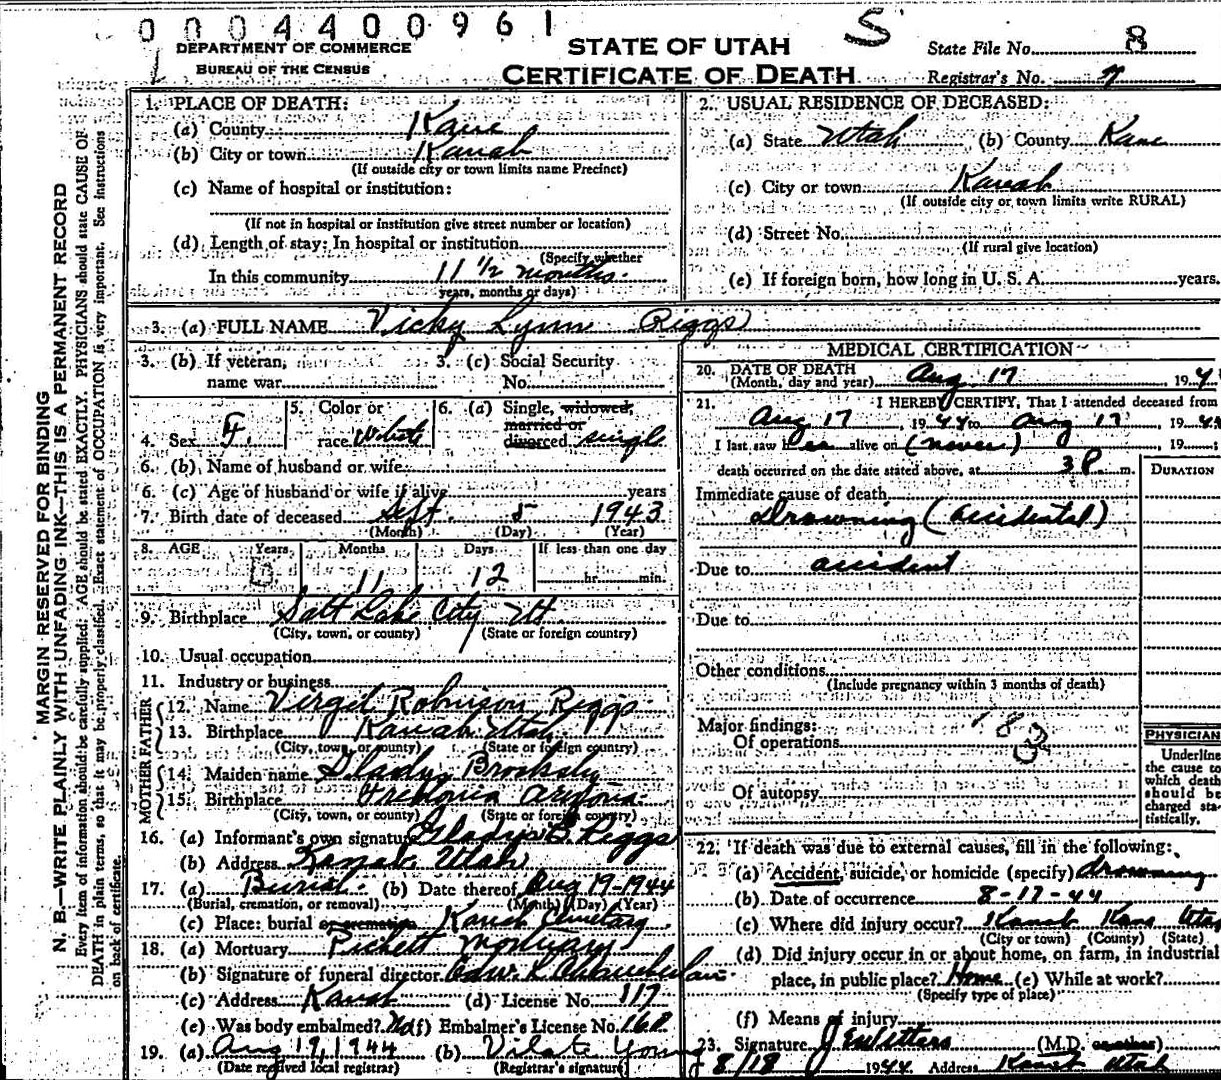 0004400961
S
DEPARTMENT OF COMMERCE
BUREAU OF THE CENSUS
STATE OF UTAH
CERTIFICATE OF DEATH
State File No. 8
Registrar's No. 7
MARGIN RESERVED FOR BINDING
N. B.—WRITE PLAINLY WITH UNFADING INK—THIS IS A PERMANENT RECORD
Every item of information should be carefully supplied. AGE should be stated EXACTLY. PHYSICIANS should state CAUSE OF
DEATH in plain terms, so that it may be properly classified. Exact statement of OCCUPATION is very important. See instructions
on back of certificate.
1. PLACE OF DEATH:
(a) County Kane
(b) City or town Kanab
(If outside city or town limits name Precinct)
(c) Name of hospital or institution:
(If not in hospital or institution give street number or location)
(d) Length of stay: In hospital or institution
(Specify whether
In this community 11 1/2 months.
years, months or days)
2. USUAL RESIDENCE OF DECEASED:
(a) State Utah (b) County Kane
(c) City or town Kanab
(If outside city or town limits write RURAL)
(d) Street No.
(If rural give location)
(e) If foreign born, how long in U. S. A. years.
3. (a) FULL NAME Vicky Lynne Riggs
3. (b) If veteran, name war
3. (c) Social Security No.
4. Sex F
5. Color or race White
6. (a) Single, widowed, married or divorced single
6. (b) Name of husband or wife
6. (c) Age of husband or wife if alive years
7. Birth date of deceased Sept. 5 1943
(Month) (Day) (Year)
8. AGE Years Months Days If less than one day
0 11 12 hr. min.
9. Birthplace Salt Lake City Ut
(City, town, or county) (State or foreign country)
10. Usual occupation
11. Industry or business
FATHER
12. Name Virgil Robinson Riggs
13. Birthplace Kanab Utah
(City, town, or county) (State or foreign country)
MOTHER
14. Maiden name Gladys Brooksby
15. Birthplace Fredonia Arizona.
(City, town, or county) (State or foreign country)
16. (a) Informant's own signature Gladys B. Riggs
(b) Address Kanab Utah
17. (a) Burial. (b) Date thereof Aug 19-1944
(Burial, cremation, or removal) (Month) (Day) (Year)
(c) Place: burial or cremation Kanab Cemetary
18. (a) Mortuary Pickett Mortuary
(b) Signature of funeral director Edw. L. Chamberlain.
(c) Address Kanab (d) License No. 117
(e) Was body embalmed? No (f) Embalmer's License No. 168
19. (a) Aug 19, 1944 (b) Vilate Young
(Date received local registrar) (Registrar's signature)
MEDICAL CERTIFICATION
20. DATE OF DEATH
(Month, day and year) Aug. 17 19 4
21. I HEREBY CERTIFY, That I attended deceased from
Aug 17, 1944 to Aug 17, 1944
I last saw her alive on (never) 19
death occurred on the date stated above, at 3 P. m.
DURATION
Immediate cause of death
Drowning (accidental)
Due to accident
Due to
Other conditions
(Include pregnancy within 3 months of death)
Major findings:
Of operations
183
Of autopsy
PHYSICIAN
Underline
the cause to
which death
should be
charged sta-
tistically.
22. If death was due to external causes, fill in the following:
(a) Accident, suicide, or homicide (specify) drowning
(b) Date of occurrence 8-17-44
(c) Where did injury occur? Kanab Kane Utah
(City or town) (County) (State)
(d) Did injury occur in or about home, on farm, in industrial
place, in public place? Home (e) While at work?
(Specify type of place)
(f) Means of injury
23. Signature (M.D. or other)
8/18 1944 Address Kanab Utah